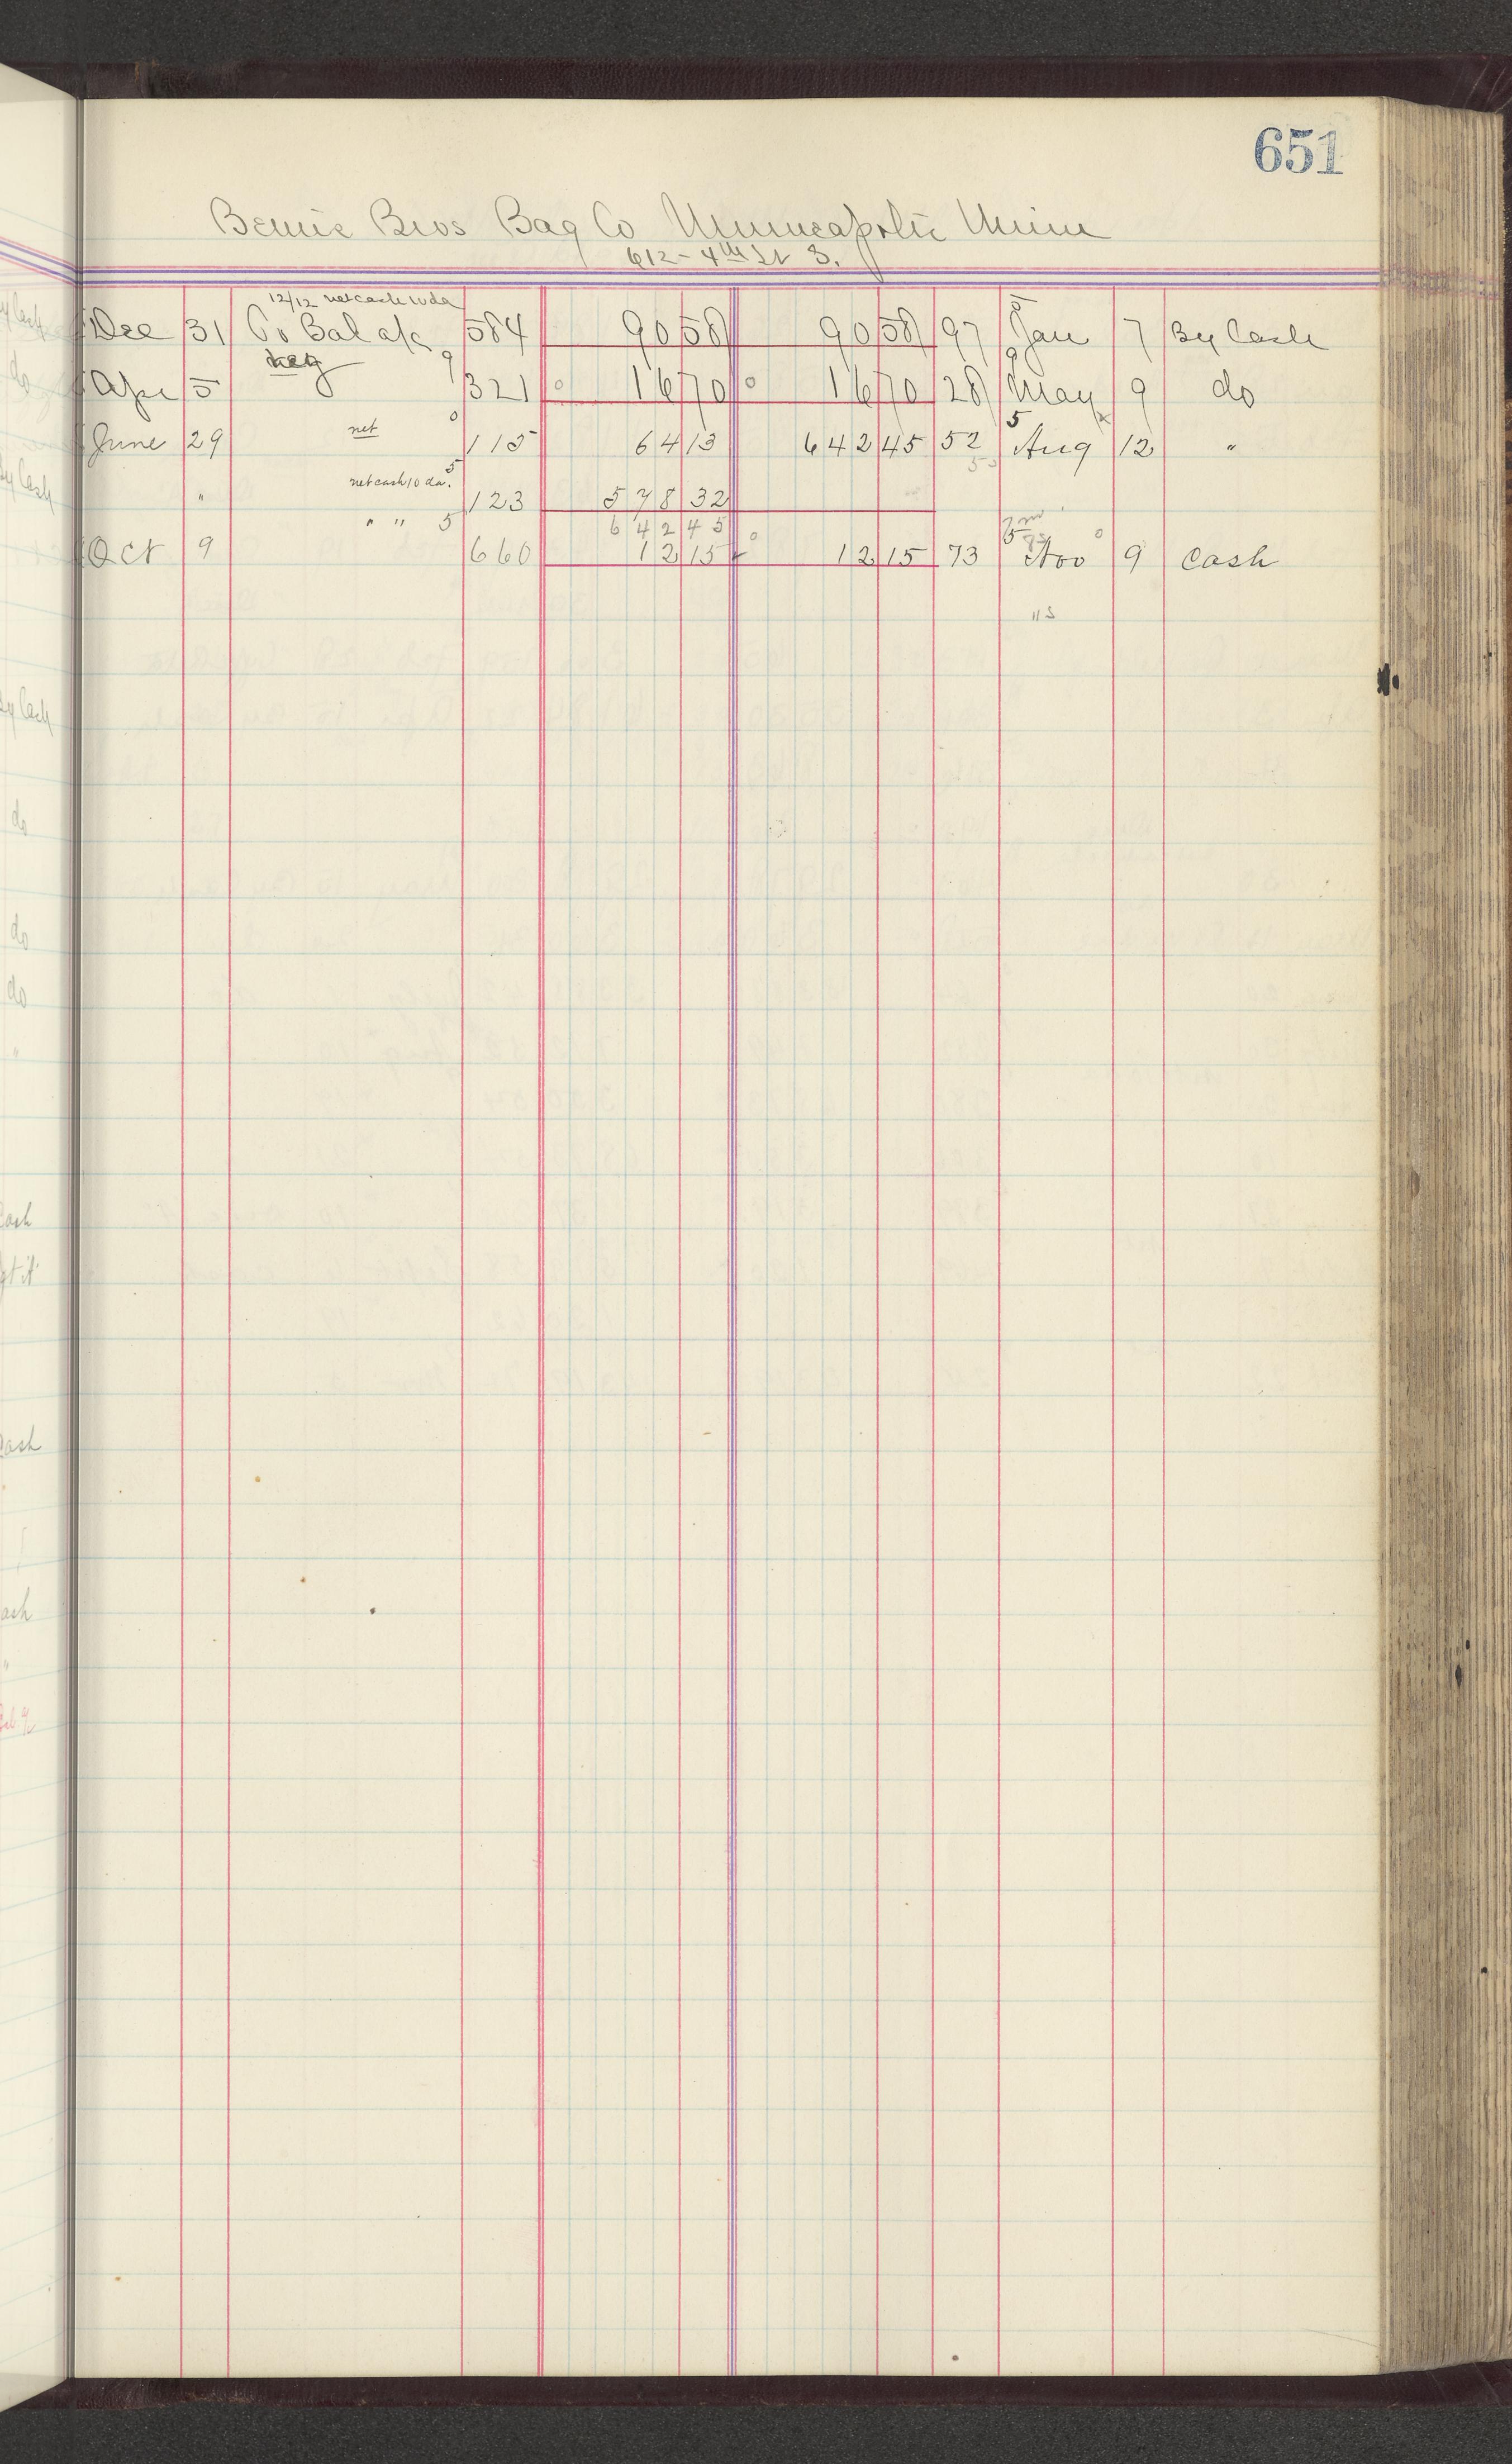 651
Bemis Bros Bag Co Minneapolis Minn
612 - 4th St S.
12/12 net cash 10 da
Dec 31 To Bal a/c 584 90 58 90 58 97 5 Jan 7 By Cash
Apr 5 9 321 16 70 16 70 28 9 May 9 do
June 29 net 0 115 64 13 642 45 52 5 Aug 12 "
" net cash 10 da. 5 123 578 32
642 45
Oct 9 " " 5 660 12 15 12 15 73 5 Nov 9 Cash
By Cash
do
By Cash
By Cash
do
do
do
"
Cash
Cash
"